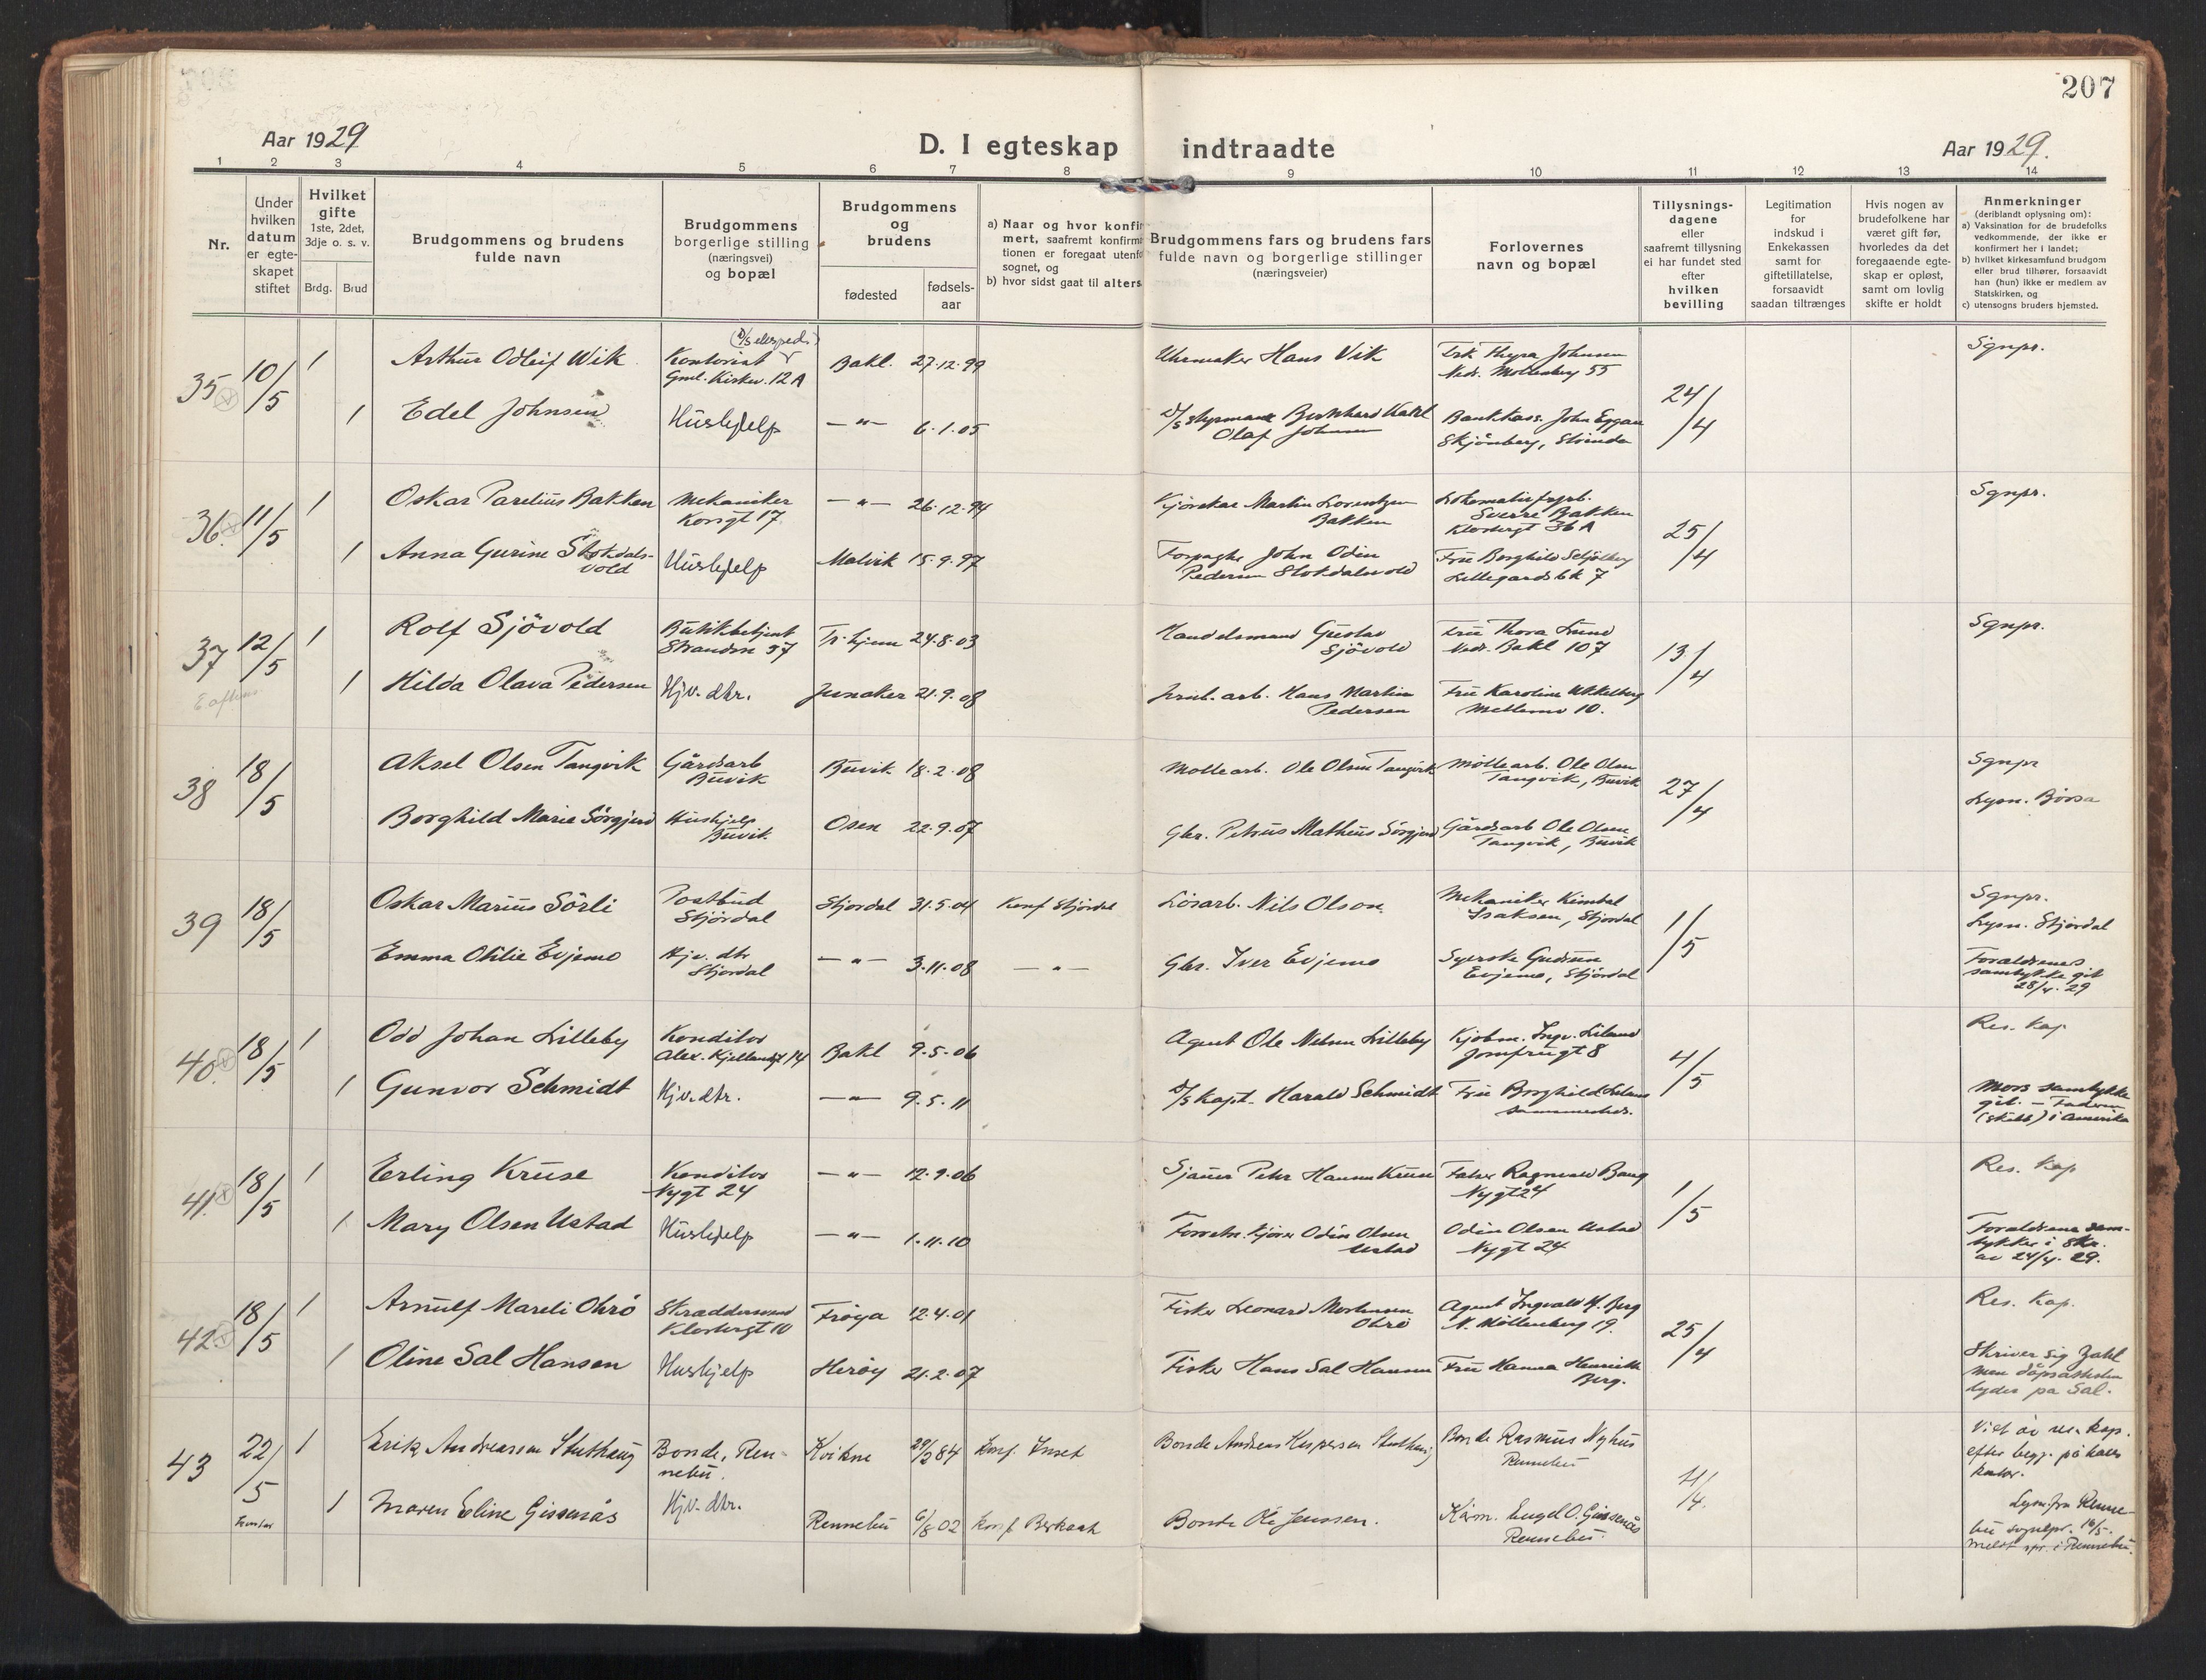 207
Aar 1929
D. I egteskap indtraadte
Aar 1929.
1 2 3 4 5 6 7 8 9 10 11 12 13 14
Nr.
Under
hvilken
datum
er egte-
skapet
stiftet
Hvilket
gifte
1ste, 2det,
3dje o. s. v.
Brdg. Brud
Brudgommens og brudens
fulde navn
Brudgommens
borgerlige stilling
(næringsvei)
og bopæl
Brudgommens
og
brudens
fødested
fødsels-
aar
a) Naar og hvor konfir
mert, saafremt konfirm
tionen er foregaat utenfo
sognet, og
b) hvor sidst gaat til alters
Brudgommens fars og brudens fars
fulde navn og borgerlige stillinger
(næringsveier)
Forlovernes
navn og bopæl
Tillysnings-
dagene
eller
saafremt tillysning
ei har fundet sted
efter
hvilken
bevilling
Legitimation
for
indskud i
Enkekassen
samt for
giftetillatelse,
forsaavidt
saadan tiltrænges
Hvis nogen av
brudefolkene har
været gift før,
hvorledes da det
foregaaende egte-
skap er opløst,
samt om lovlig
skifte er holdt
Anmerkninger
(deriblandt oplysning om):
a) Vaksination for de brudefolks
vedkommende, der ikke er
konfirmert her i landet;
b) hvilket kirkesamfund brudgom
eller brud tilhører, forsaavidt
han (hun) ikke er medlem av
Statskirken, og
c) utensogns bruders hjemsted.
35
10/5
1
Arthur Odleif Wik
Kontorist
Gml. Kirkev. 12 A
Bakl. 27.12.99
Uhrmaker Hans Vik
Frk Thyra Johnsen
Nedr. Møllenberg 55
24/4
Sgnpr.
1
Edel Johnsen
Hushjelp
—"— 6.1.05
D/S styrmand Bernhard
Olaf Johnsen
Bankkass. John Eggan
Skjönberg, Strinda
36
11/5
1
Oskar Parelius Bakken
Mekaniker
Kongt 17
—"— 26.12.94
Martin Lorentzen
Bakken
Sverre Bakken
Klostergt 36 A
25/4
Sgnpr.
1
Anna Gurine Stokdals-
vold
Hushjelp
Malvik 15.9.97
John Odin
Pedersen Stokdalsvold
Fru Borghild
7
37
12/5
1
Rolf Sjövold
Butikbetjent
Strandvn 37
Tr.hjem 24.8.03
Handelsmand Gustav
Sjövold
Fru Thora Lund
Nedr. Bakl 107
13/4
Sgnpr.
E. aftens
1
Hilda Olava Pedersen
Hjv. dtr.
21.9.08
Jernb. arb. Hans Martin
Pedersen
Fru Karoline
Mellemv 10.
38
18/5
Aksel Olsen Tangvik
Gårdsarb
Buvik
Buvik 18.2.08
Möllearb. Ole Olsen Tangvik
Möllearb. Ole Olsen
Tangvik, Buvik
27/4
Sgnpr
Lysn. Börsa
Borghild Marie Sörgjerd
Hushjelp
Buvik
Osen 22.9.07
Gbr. Petrus Mathius Sörgjerd
Gårdsarb Ole Olsen
Tangvik, Buvik
39
18/5
Oskar Marius Sörli
Postbud
Stjördal
Stjördal 31.5.04 Konf Stjördal
Lösarb. Nils Olson
Mekaniker Kimbal
Isaksen, Stjördal
1/5
Sgnpr.
Lysn. Stjördal
Emma Otilie Evjemo
Hjv. dtr
Stjördal
—"— 3.11.08 —"—
Gbr. Iver Evjemo
Syerske Gudrun
Evjemo, Stjördal
Foraldrenes
samtykke git
28/4.29
40
18/5
1
Odd Johan Lilleby
Konditor
Alex. Kjellandsgt 14
Bakl 9.5.06
Agent Ole Nelsen Lilleby
Kjöbm. Ingv. Liland
Jomfrugt 8
4/5
Res. Kap
1
Gunvor Schmidt
Hjv. dtr.
—"— 9.5.11
D/S Kapt. Harald Schmidt
Fru Borghild Liland
sammesteds.
Mors samtykke
git. — Faderen
(skilt) i Amerika
41
18/5
1
Erling Kruse
Konditor
Nygt 24
—"— 12.9.06
Sjauer Peter Hansen Kruse
Ragnvald Bang
Nygt 24
1/5
Res. Kap
1
Mary Olsen Ustad
Hushjelp
—"— 1.11.10
Odin Olsen
Ustad
Odin Olsen Ustad
Nygt 24
Foraldrene sam-
tykker i skr.
av 24/4.29.
42
18/5
1
Arnulf Mareli Ohrö
Skraddersvend
Klostergt 10
Fröya 12.4.01
Fisker Leonard Mortensen
Ohrö
Agent Ingvald H. Berg
N. Möllenberg 19.
25/4
Res. Kap.
1
Oline Sal Hansen
Hushjelp
Heröy 21.2.07
Fisker Hans Sal Hansen
Fru Hanna Henriette
Berg.
Skriver sig Zahl
men dåpsattesten
lyder pa Sal.
43
22/5
1
Erik Andreassen Stuthaug
Bonde, Ren-
nebu.
Kvikne 29/2 84 Konf. Inset
Bonde Andreas Kaspersen Stuthaug
Bonde Rasmus Nyhus
Rennebu
4/4.
Viet av res. kap.
efter begj. på hans
kontor.
1
Maren Eline Gissenås
Hjv. dtr.
Rennebu 6/8 02 Konf Berkaak
Bonde Ole Jenssen.
Engel O. Gissenås
Rennebu.
Lysn fra Renne-
bu sognepr. 16/5.
meldt spr. i Rennebu.